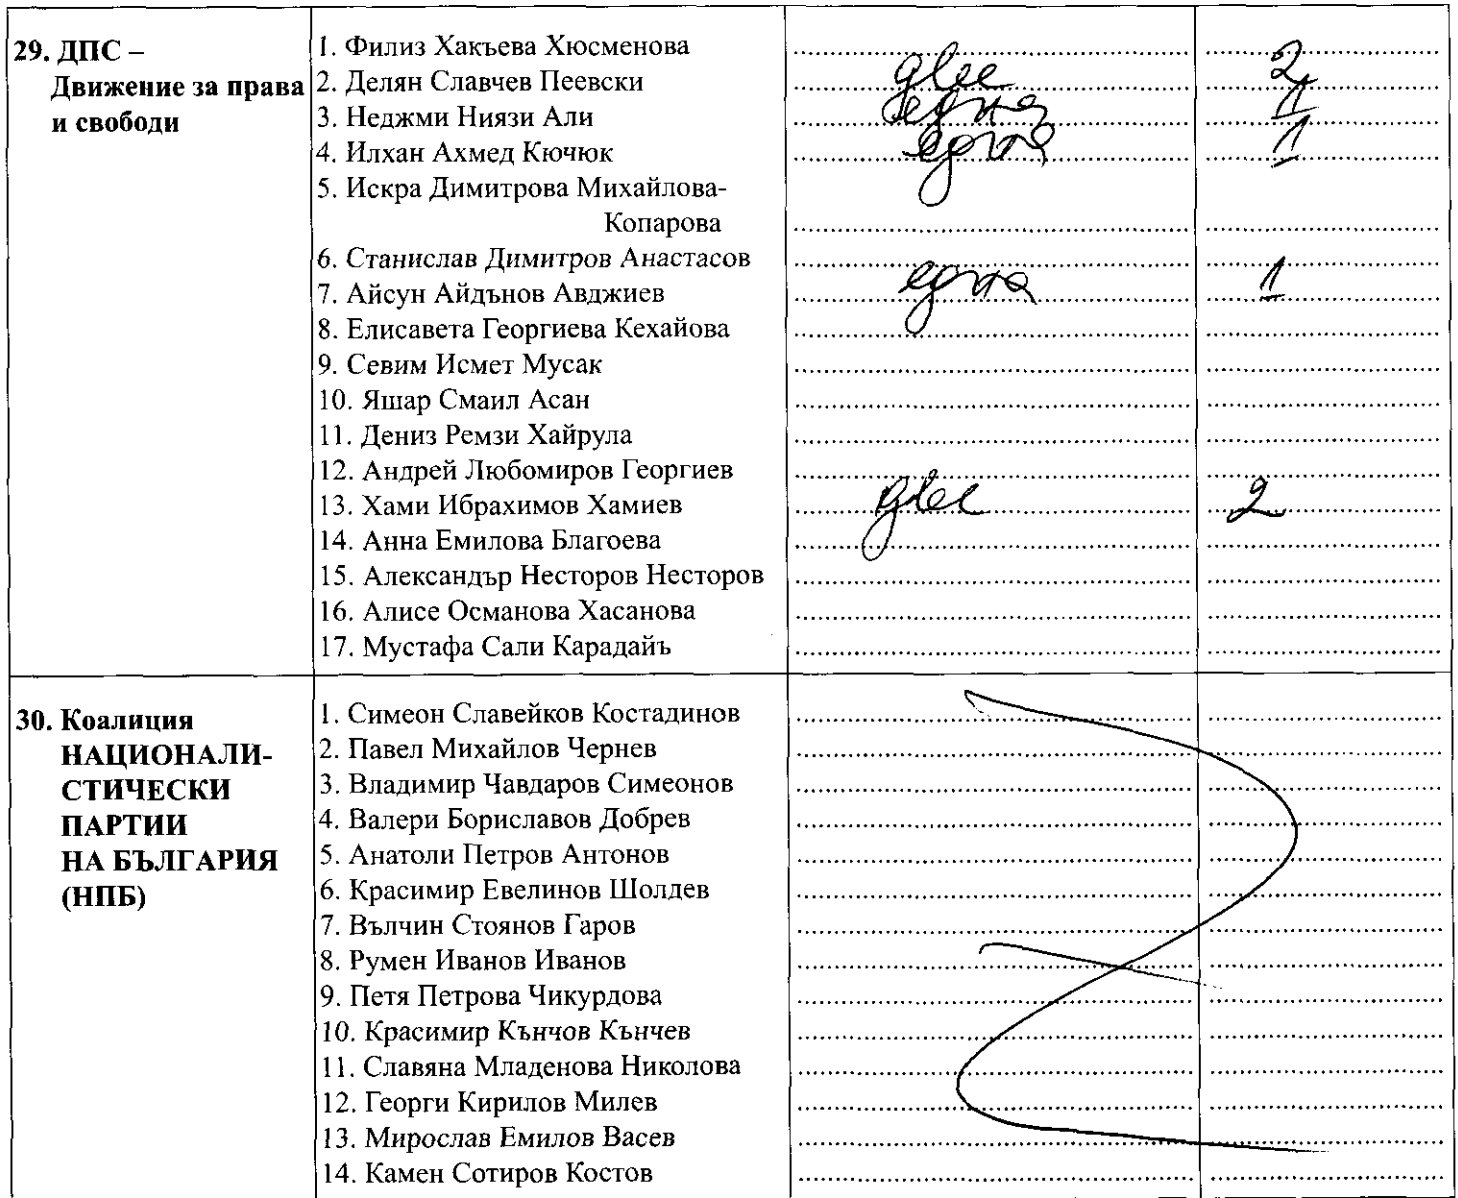 29. ДПС –
Движение за права
и свободи
1. Филиз Хакъева Хюсменова
2. Делян Славчев Пеевски две 2
3. Неджми Ниязи Али една 1
4. Илхан Ахмед Кючюк една 1
5. Искра Димитрова Михайлова-
Копарова
6. Станислав Димитров Анастасов
7. Айсун Айдънов Авджиев една 1
8. Елисавета Георгиева Кехайова
9. Севим Исмет Мусак
10. Яшар Смаил Асан
11. Дениз Ремзи Хайрула
12. Андрей Любомиров Георгиев
13. Хами Ибрахимов Хамиев две 2
14. Анна Емилова Благоева
15. Александър Несторов Несторов
16. Алисе Османова Хасанова
17. Мустафа Сали Карадайъ
30. Коалиция
НАЦИОНАЛИ-
СТИЧЕСКИ
ПАРТИИ
НА БЪЛГАРИЯ
(НПБ)
1. Симеон Славейков Костадинов
2. Павел Михайлов Чернев
3. Владимир Чавдаров Симеонов
4. Валери Бориславов Добрев
5. Анатоли Петров Антонов
6. Красимир Евелинов Шолдев
7. Вълчин Стоянов Гаров
8. Румен Иванов Иванов
9. Петя Петрова Чикурдова
10. Красимир Кънчов Кънчев
11. Славяна Младенова Николова
12. Георги Кирилов Милев
13. Мирослав Емилов Васев
14. Камен Сотиров Костов